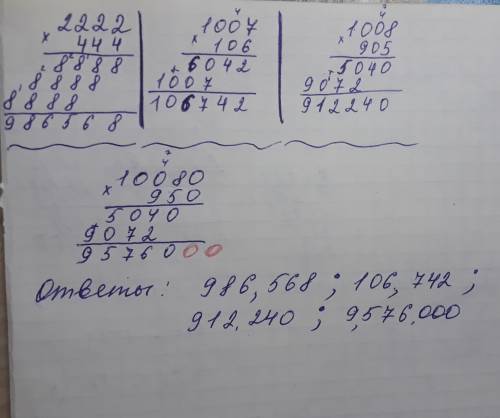 2222
× 444
8888
8888
8888
986568
4
1007
× 106
6042
1007
106742
4
1008
× 905
5040
9072
912240
4
10080
× 950
5040
9072
9576000
Ответы: 986,568 ; 106,742 ;
912.240 ; 9,576.000